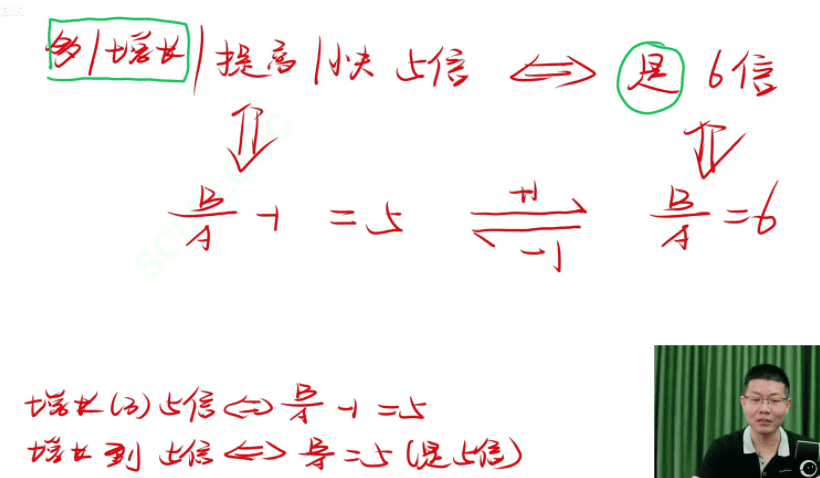 多/增长/提高/快 5倍 ⇔ 是 6倍
⇓ ⇓
B/A -1 = 5 +1 ⇌ -1 B/A = 6
增长(了)5倍⇔B/A -1 = 5
增长到 5倍⇔B/A = 5(是5倍)